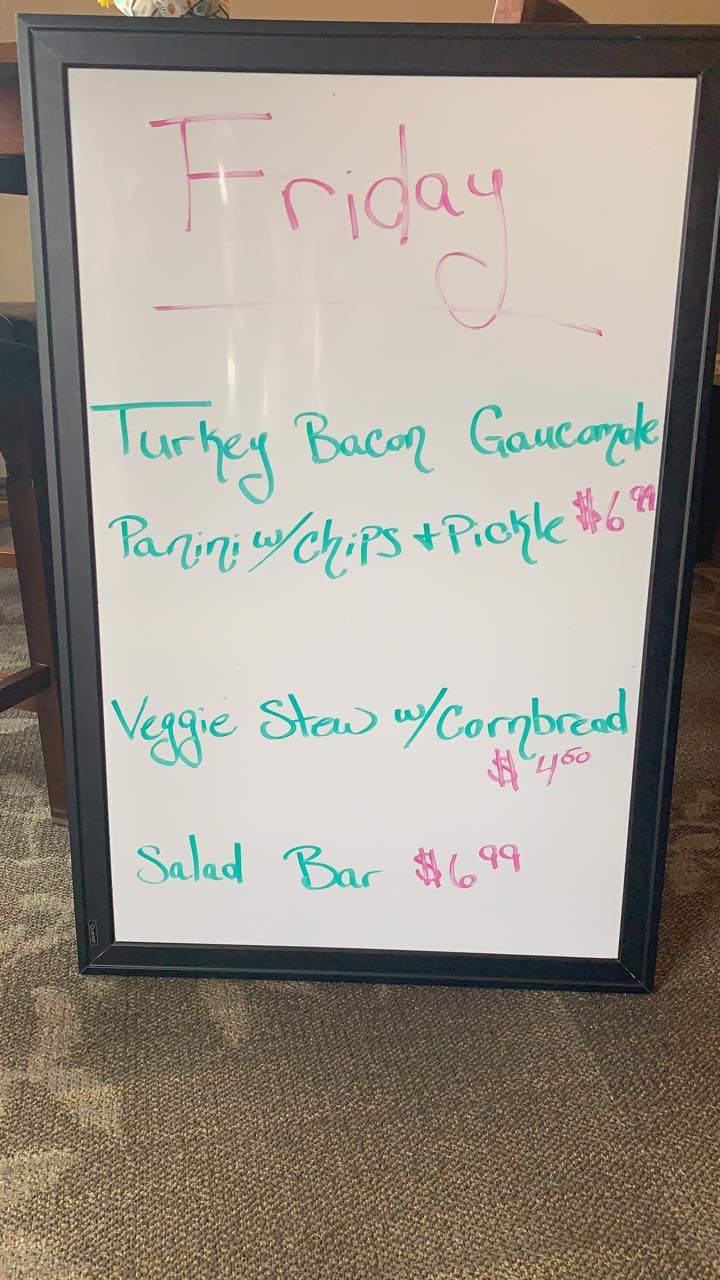 Friday
Turkey Bacon Gaucomole
Panini w/chips + Pickle $6.99
Veggie Stew w/Cornbread
$4.50
Salad Bar $6.99